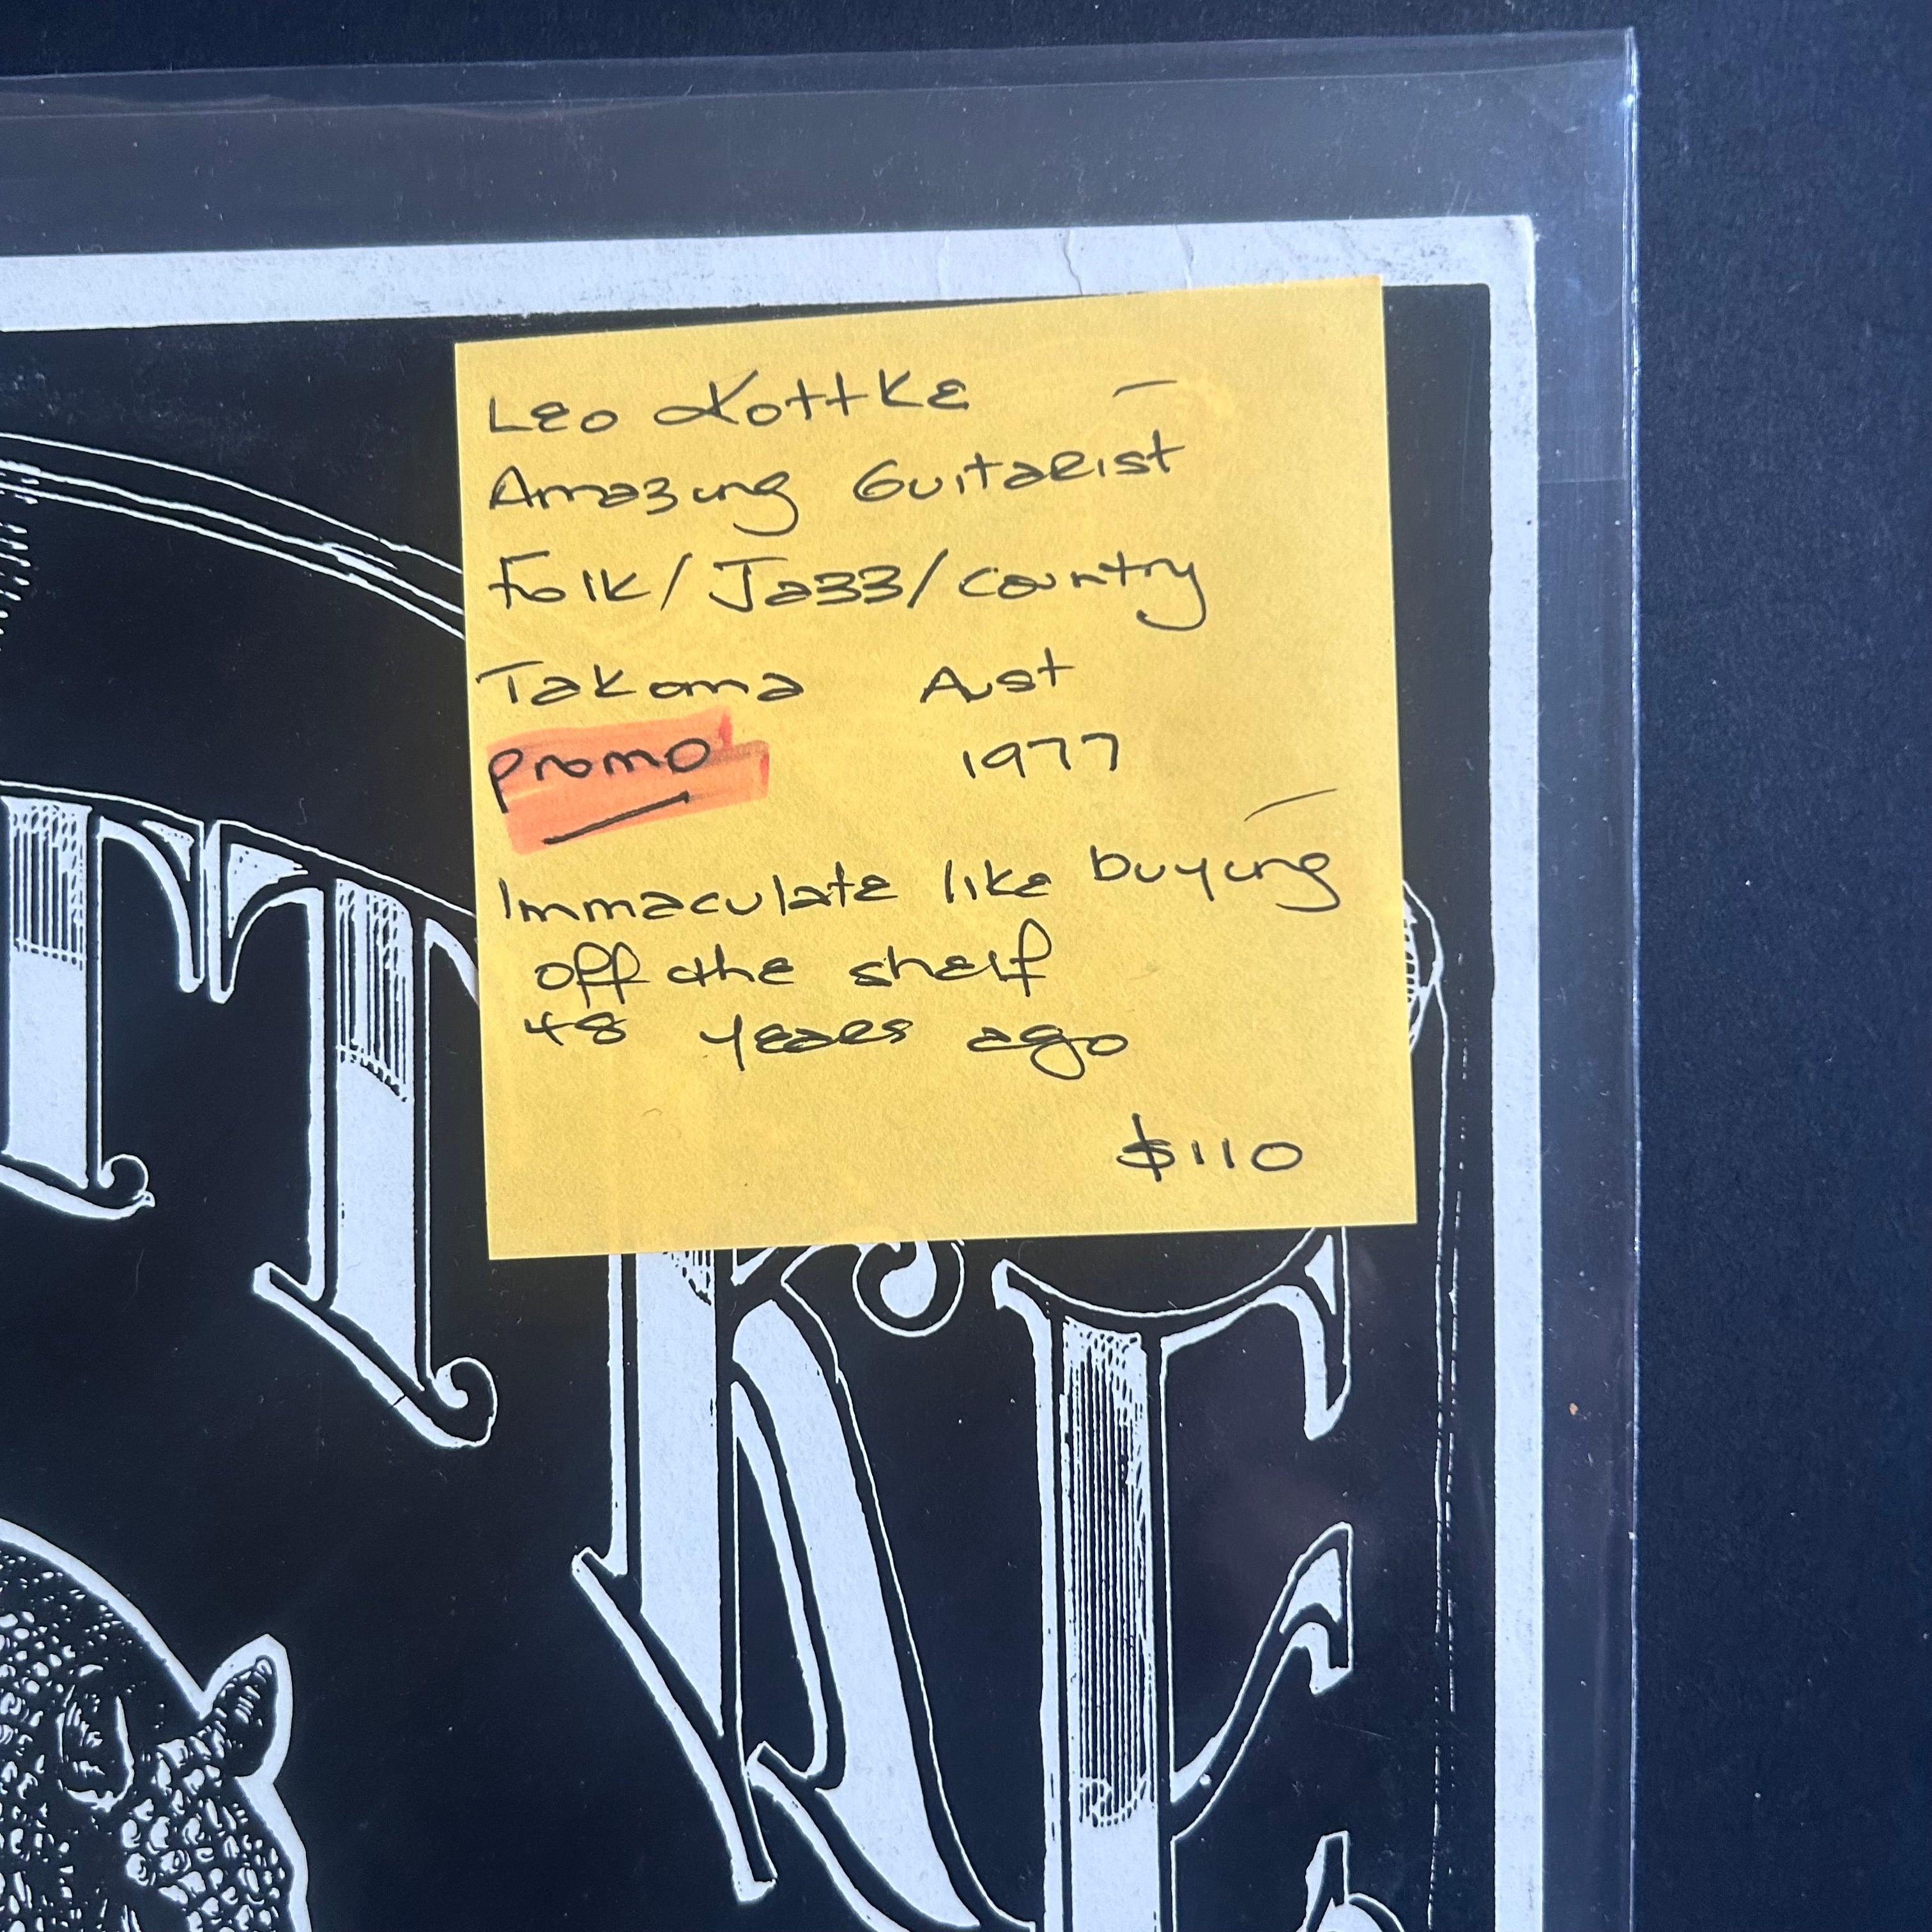 Leo Kottke
Amazing Guitarist
Folk/Jazz/Country
Takoma Aust
Promo 1977
Immaculate like buying
off the shelf
48 years ago
$110
TTKE